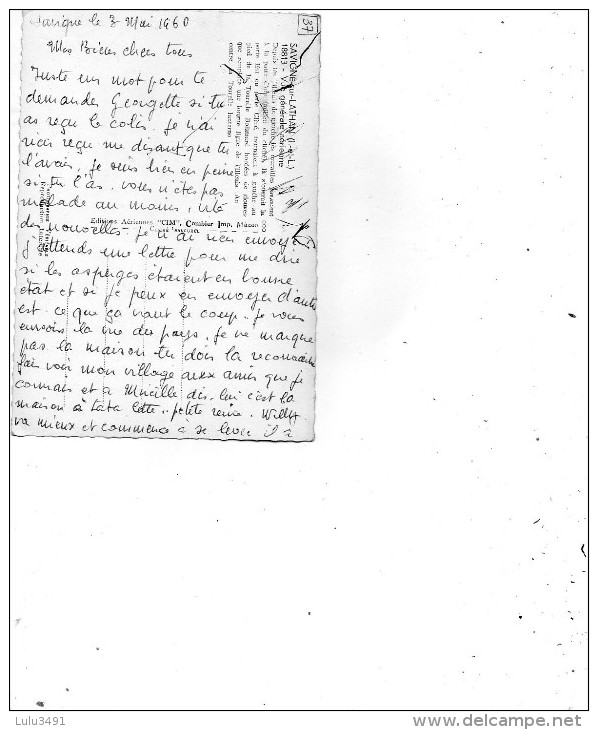 Savigné le 3 Mai 1960
Mes Biens chers tous
Juste un mot pour te
demander Georgette si tu
as reçu le colis. je n'ai
rien reçu me disant que tu
l'avais, je suis bien en peine
si tu l'as. vous n'êtes pas
malade au moins, vite
des nouvelles - je n'ai rien envoyé
j'attends une lettre pour me dire
si les asperges étaient en bonne
état et si je peux en envoyer d'autres
est-ce que ça vaut le coup. je vous
envois la vue du pays. je ne marque
pas la maison tu dois la reconnaître
fais voir mon village aux amis que je
connais et a Mireille dis-lui c'est la
maison à tata petite reine. Willy
va mieux et commence à se lever il a
37
SAVIGNÉ-sur-LATHAN (I.-et-L.)
18813 - Vue générale aérienne
Editions Aériennes "CIM", Combier Imp. Mâcon
Lulu3491
www.delcampe.net